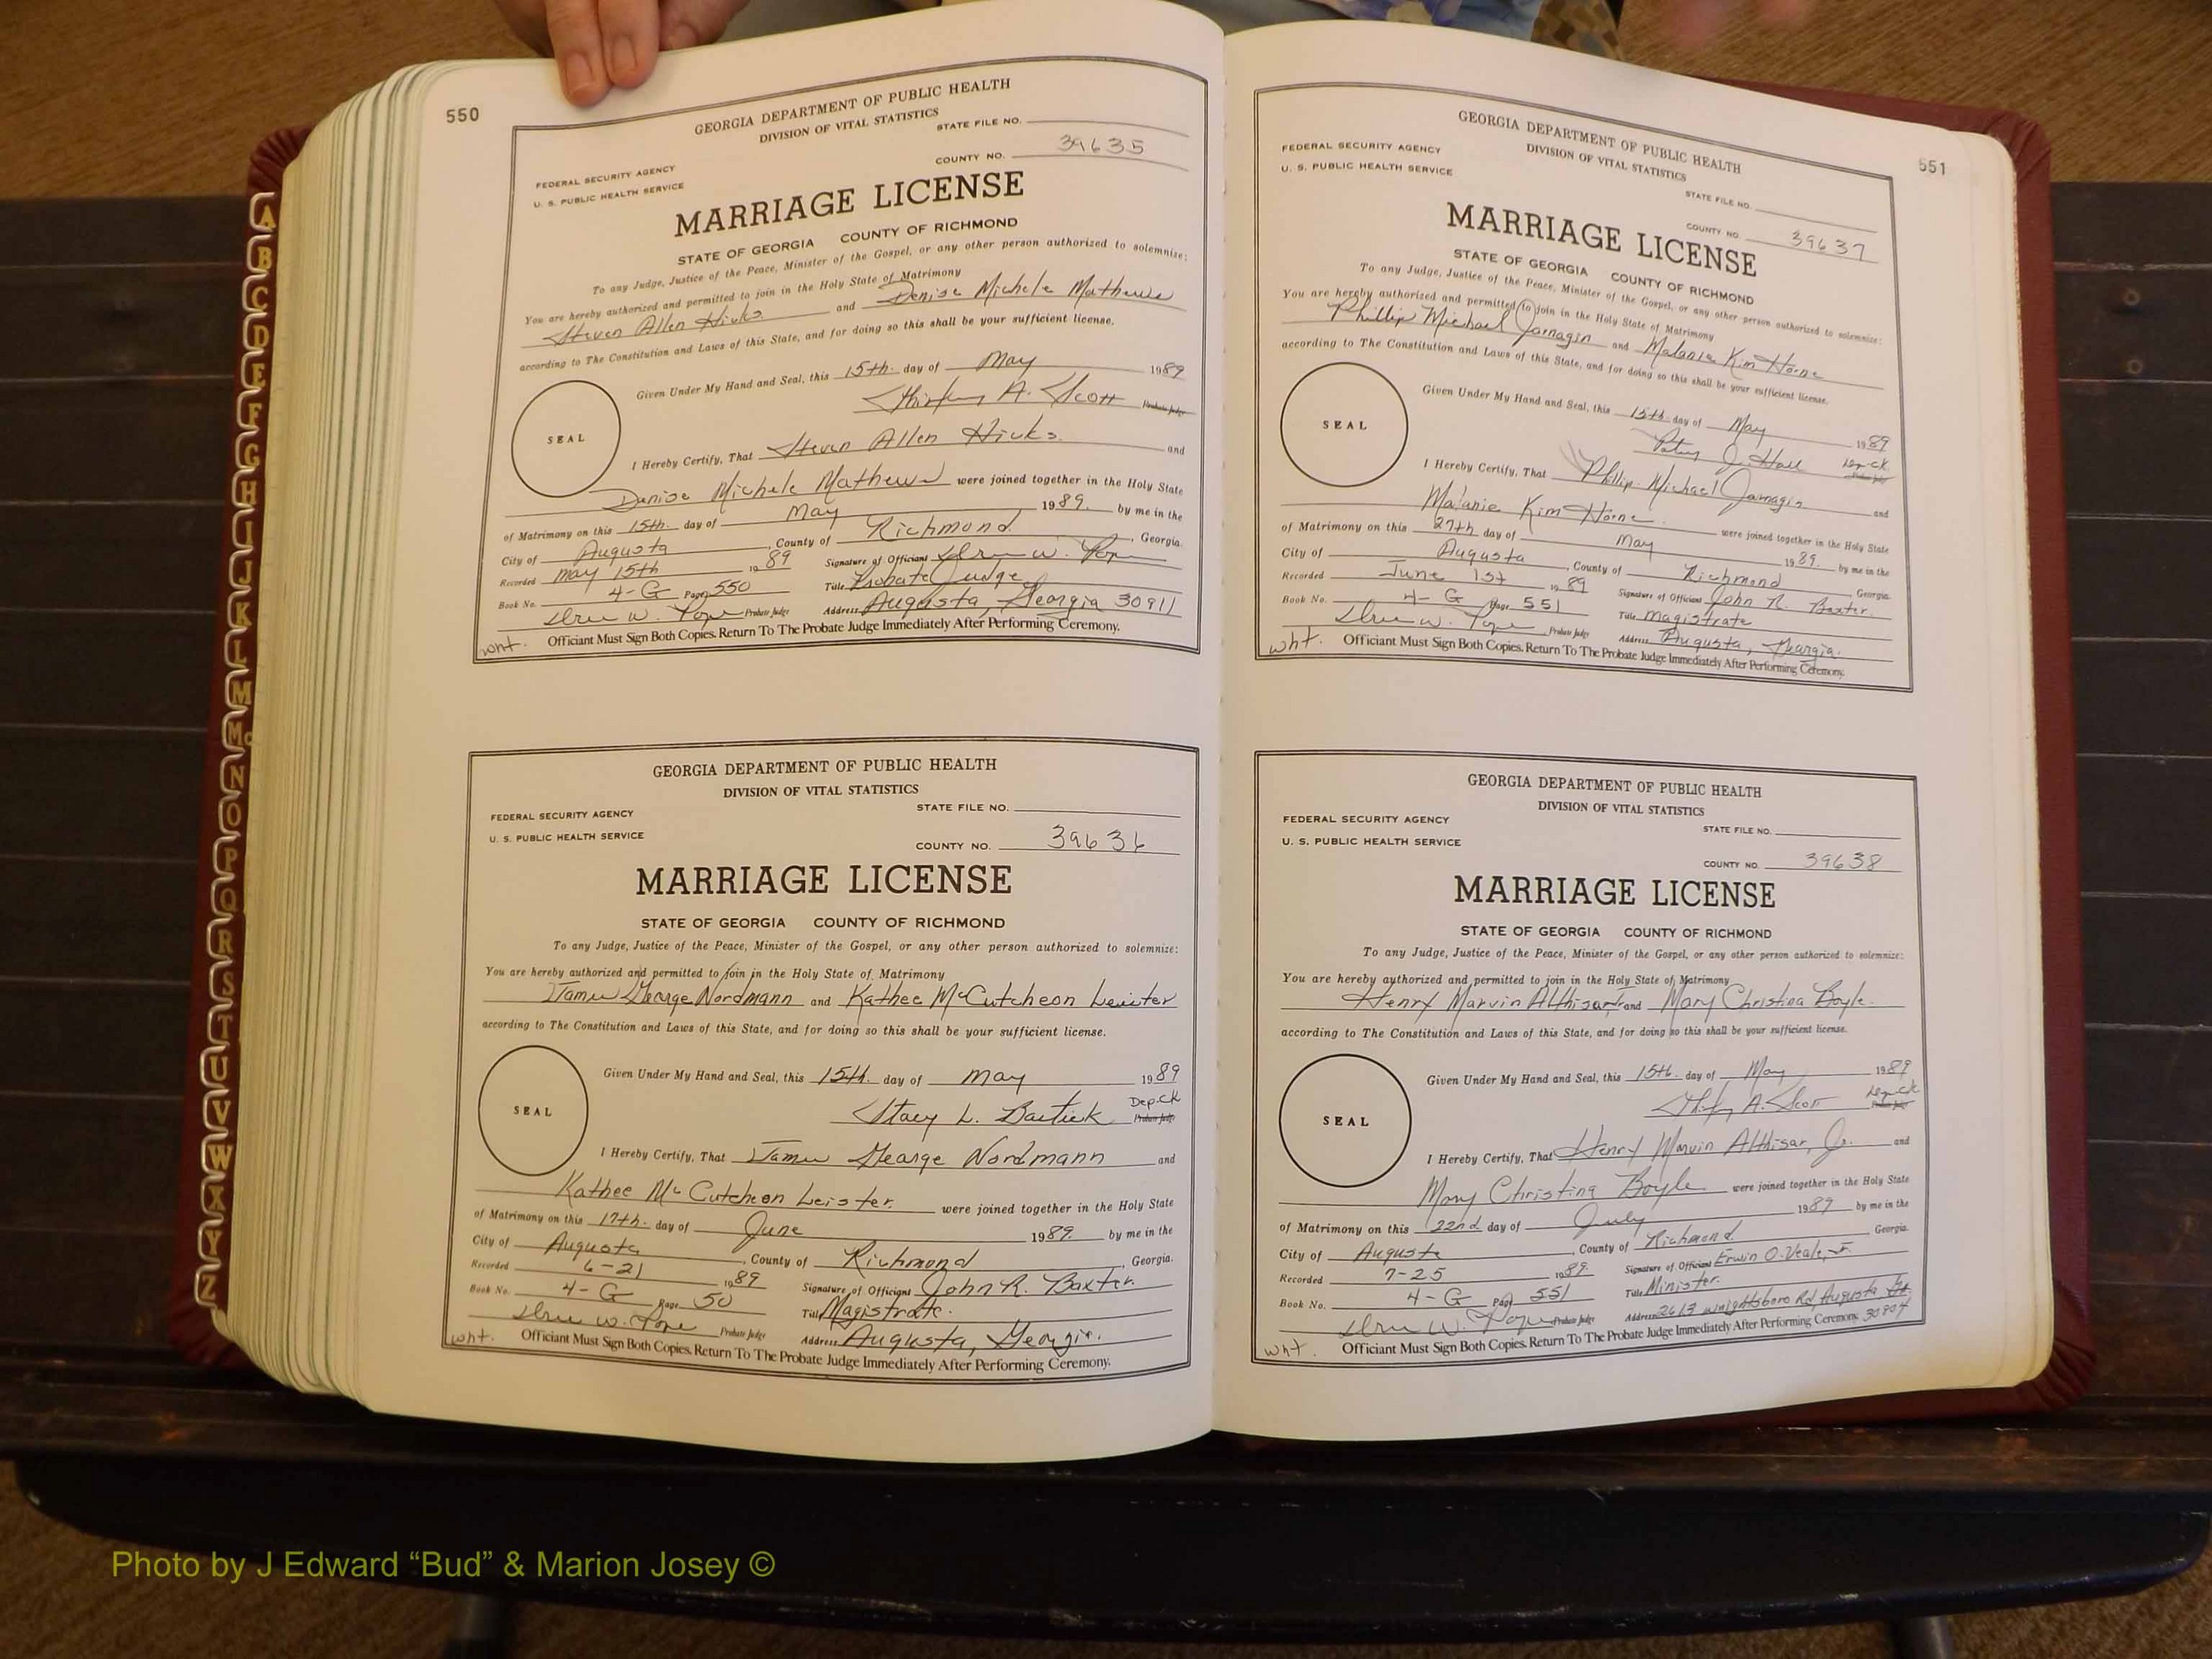 550
GEORGIA DEPARTMENT OF PUBLIC HEALTH
DIVISION OF VITAL STATISTICS
STATE FILE NO.
FEDERAL SECURITY AGENCY
U. S. PUBLIC HEALTH SERVICE
COUNTY NO. 39635
MARRIAGE LICENSE
STATE OF GEORGIA COUNTY OF RICHMOND
To any Judge, Justice of the Peace, Minister of the Gospel, or any other person authorized to solemnize:
You are hereby authorized and permitted to join in the Holy State of Matrimony
Steven Allen Hicks and Denise Michele Mathews
according to The Constitution and Laws of this State, and for doing so this shall be your sufficient license.
Given Under My Hand and Seal, this 15th. day of May 1989
Shirley A. Scott Probate Judge
SEAL
I Hereby Certify, That Steven Allen Hicks and
Denise Michele Mathews were joined together in the Holy State
of Matrimony on this 15th. day of May 1989. by me in the
City of Augusta, County of Richmond, Georgia.
Recorded May 15th 1989 Signature of Officiant
Book No. 4-G Page 550 Title Probate Judge
Probate Judge Address Augusta, Georgia 30911
wht. Officiant Must Sign Both Copies. Return To The Probate Judge Immediately After Performing Ceremony.
GEORGIA DEPARTMENT OF PUBLIC HEALTH
DIVISION OF VITAL STATISTICS
FEDERAL SECURITY AGENCY
STATE FILE NO.
U. S. PUBLIC HEALTH SERVICE
COUNTY NO. 39636
MARRIAGE LICENSE
STATE OF GEORGIA COUNTY OF RICHMOND
To any Judge, Justice of the Peace, Minister of the Gospel, or any other person authorized to solemnize:
You are hereby authorized and permitted to join in the Holy State of Matrimony
James George Nordmann and Kathee McCutcheon Leister
according to The Constitution and Laws of this State, and for doing so this shall be your sufficient license.
Given Under My Hand and Seal, this 15th. day of May 1989
Stacy L. Dep.Ck Probate Judge
SEAL
I Hereby Certify, That James George Nordmann and
Kathee McCutcheon Leister. were joined together in the Holy State
of Matrimony on this 17th. day of June 1989. by me in the
City of Augusta, County of Richmond, Georgia.
Recorded 6-21 1989 Signature of Officiant John R. Baxter.
Book No. 4-G Page 50 Title Magistrate.
Probate Judge Address Augusta, Georgia.
wht. Officiant Must Sign Both Copies. Return To The Probate Judge Immediately After Performing Ceremony.
551
GEORGIA DEPARTMENT OF PUBLIC HEALTH
DIVISION OF VITAL STATISTICS
FEDERAL SECURITY AGENCY
U. S. PUBLIC HEALTH SERVICE
STATE FILE NO.
COUNTY NO. 39637
MARRIAGE LICENSE
STATE OF GEORGIA COUNTY OF RICHMOND
To any Judge, Justice of the Peace, Minister of the Gospel, or any other person authorized to solemnize:
You are hereby authorized and permitted to join in the Holy State of Matrimony
Phillip Michael Jarnagin and Melanie Kim Horne
according to The Constitution and Laws of this State, and for doing so this shall be your sufficient license.
Given Under My Hand and Seal, this 15th. day of May 1989
J. Hall Dep-Ck. Probate Judge
SEAL
I Hereby Certify, That Phillip Michael Jarnagin and
Melanie Kim Horne were joined together in the Holy State
of Matrimony on this 27th day of May 1989. by me in the
City of Augusta, County of Richmond Georgia.
Recorded June 1st 1989 Signature of Officiant John R. Baxter.
Book No. 4-G Page 551 Title Magistrate
Probate Judge Address Augusta, Georgia.
wht. Officiant Must Sign Both Copies. Return To The Probate Judge Immediately After Performing Ceremony.
GEORGIA DEPARTMENT OF PUBLIC HEALTH
DIVISION OF VITAL STATISTICS
FEDERAL SECURITY AGENCY
STATE FILE NO.
U. S. PUBLIC HEALTH SERVICE
COUNTY NO. 39638
MARRIAGE LICENSE
STATE OF GEORGIA COUNTY OF RICHMOND
To any Judge, Justice of the Peace, Minister of the Gospel, or any other person authorized to solemnize:
You are hereby authorized and permitted to join in the Holy State of Matrimony
Henry Marvin Althisar, Jr. and Mary Christina Boyle.
according to The Constitution and Laws of this State, and for doing so this shall be your sufficient license.
Given Under My Hand and Seal, this 15th. day of May 1989
Shirley A. Scott Dep-Ck Probate Judge
SEAL
I Hereby Certify, That Henry Marvin Althisar, Jr. and
Mary Christina Boyle were joined together in the Holy State
of Matrimony on this 22nd day of July 1989 by me in the
City of Augusta, County of Richmond Georgia.
Recorded 7-25 1989. Signature of Officiant Erwin O. Veale, Jr.
Book No. 4-G Page 551 Title Minister.
Probate Judge Address 2613 Wrightsboro Rd, Augusta Ga. 30904
wht. Officiant Must Sign Both Copies. Return To The Probate Judge Immediately After Performing Ceremony.
A
B
C
D
E
F
G
H
I
J
K
L
M
Mc
N
O
P
Q
R
S
T
U
V
W
X
Y
Z
Photo by J Edward “Bud” & Marion Josey ©